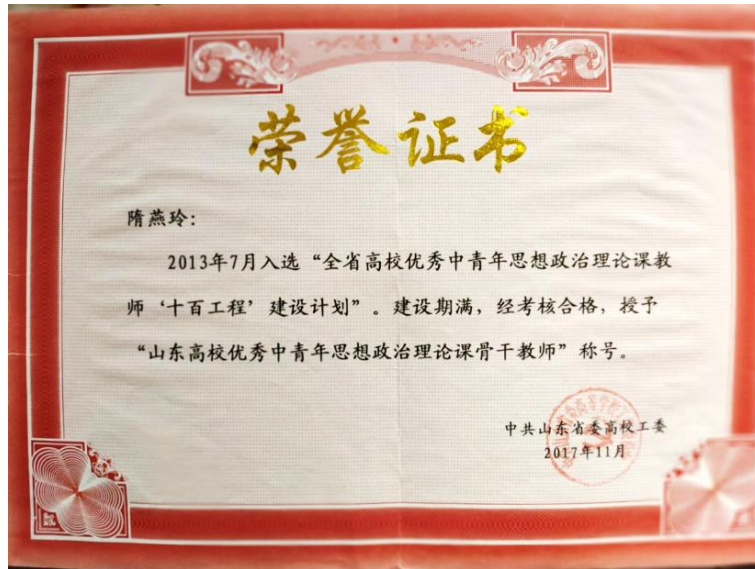 荣誉证书
隋燕玲：
2013年7月入选“全省高校优秀中青年思想政治理论课教
师‘十百工程’建设计划”。建设期满，经考核合格，授予
“山东高校优秀中青年思想政治理论课骨干教师”称号。
中共山东省委高校工委
2017年11月